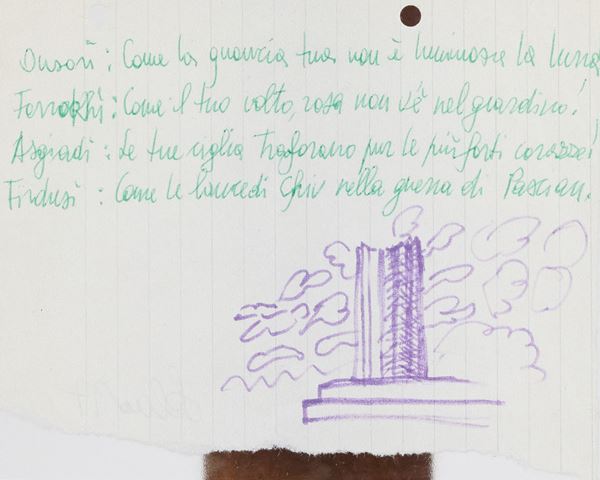 Onsori: Come la guancia tua non è luminosa la luna
Farrokhi: Come il tuo volto, rosa non v'è nel giardino!
Asgiadi: Le tue ciglia traforano pur le più forti corazze!
Firdusi: Come le lance di Ghiv nella guerra di Pascian.